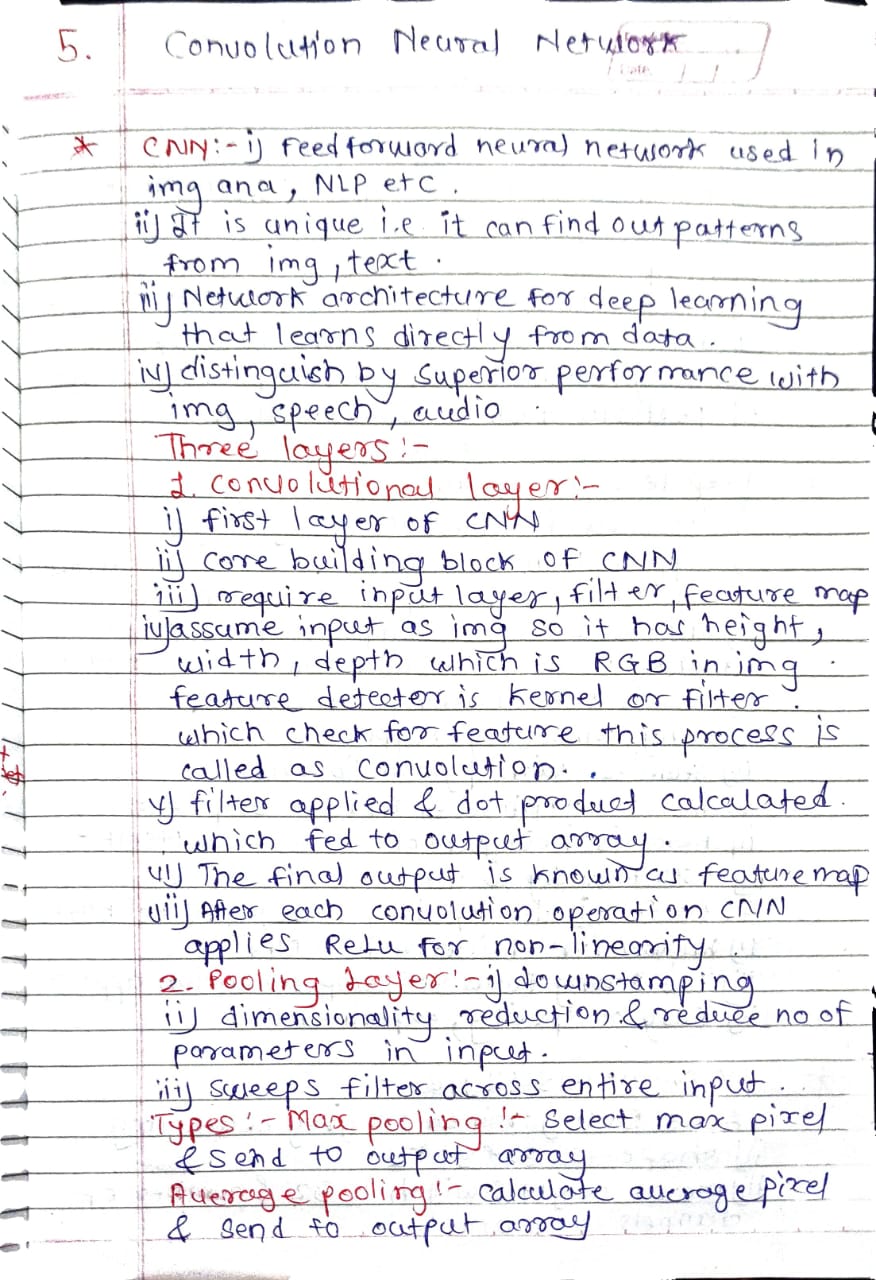 5. Convolution Neural Network
* CNN:- i) Feedforward neural network used in
img ana, NLP etc.
ii) It is unique i.e it can find out patterns
from img, text.
iii) Network architecture for deep learning
that learns directly from data.
iv) distinguish by superior performance with
img, speech, audio
Three layers:-
1. Convolutional layer:-
i) first layer of CNN
ii) Core building block of CNN
iii) require input layer, filter, feature map
iv) assume input as img so it has height,
width, depth which is RGB in img.
feature detector is kernel or filter.
which check for feature this process is
called as convolution.
v) filter applied & dot product calcalated.
which fed to output array.
vi) The final output is known as feature map
vii) After each convolution operation CNN
applies ReLu for non-linearity.
2. Pooling Layer:- i) downstamping
ii) dimensionality reduction & reduce no of
parameters in input.
iii) sweeps filter across entire input.
Types:- Max pooling:- Select max pixel
& send to output array
Average pooling:- calculate average pixel
& send to output array